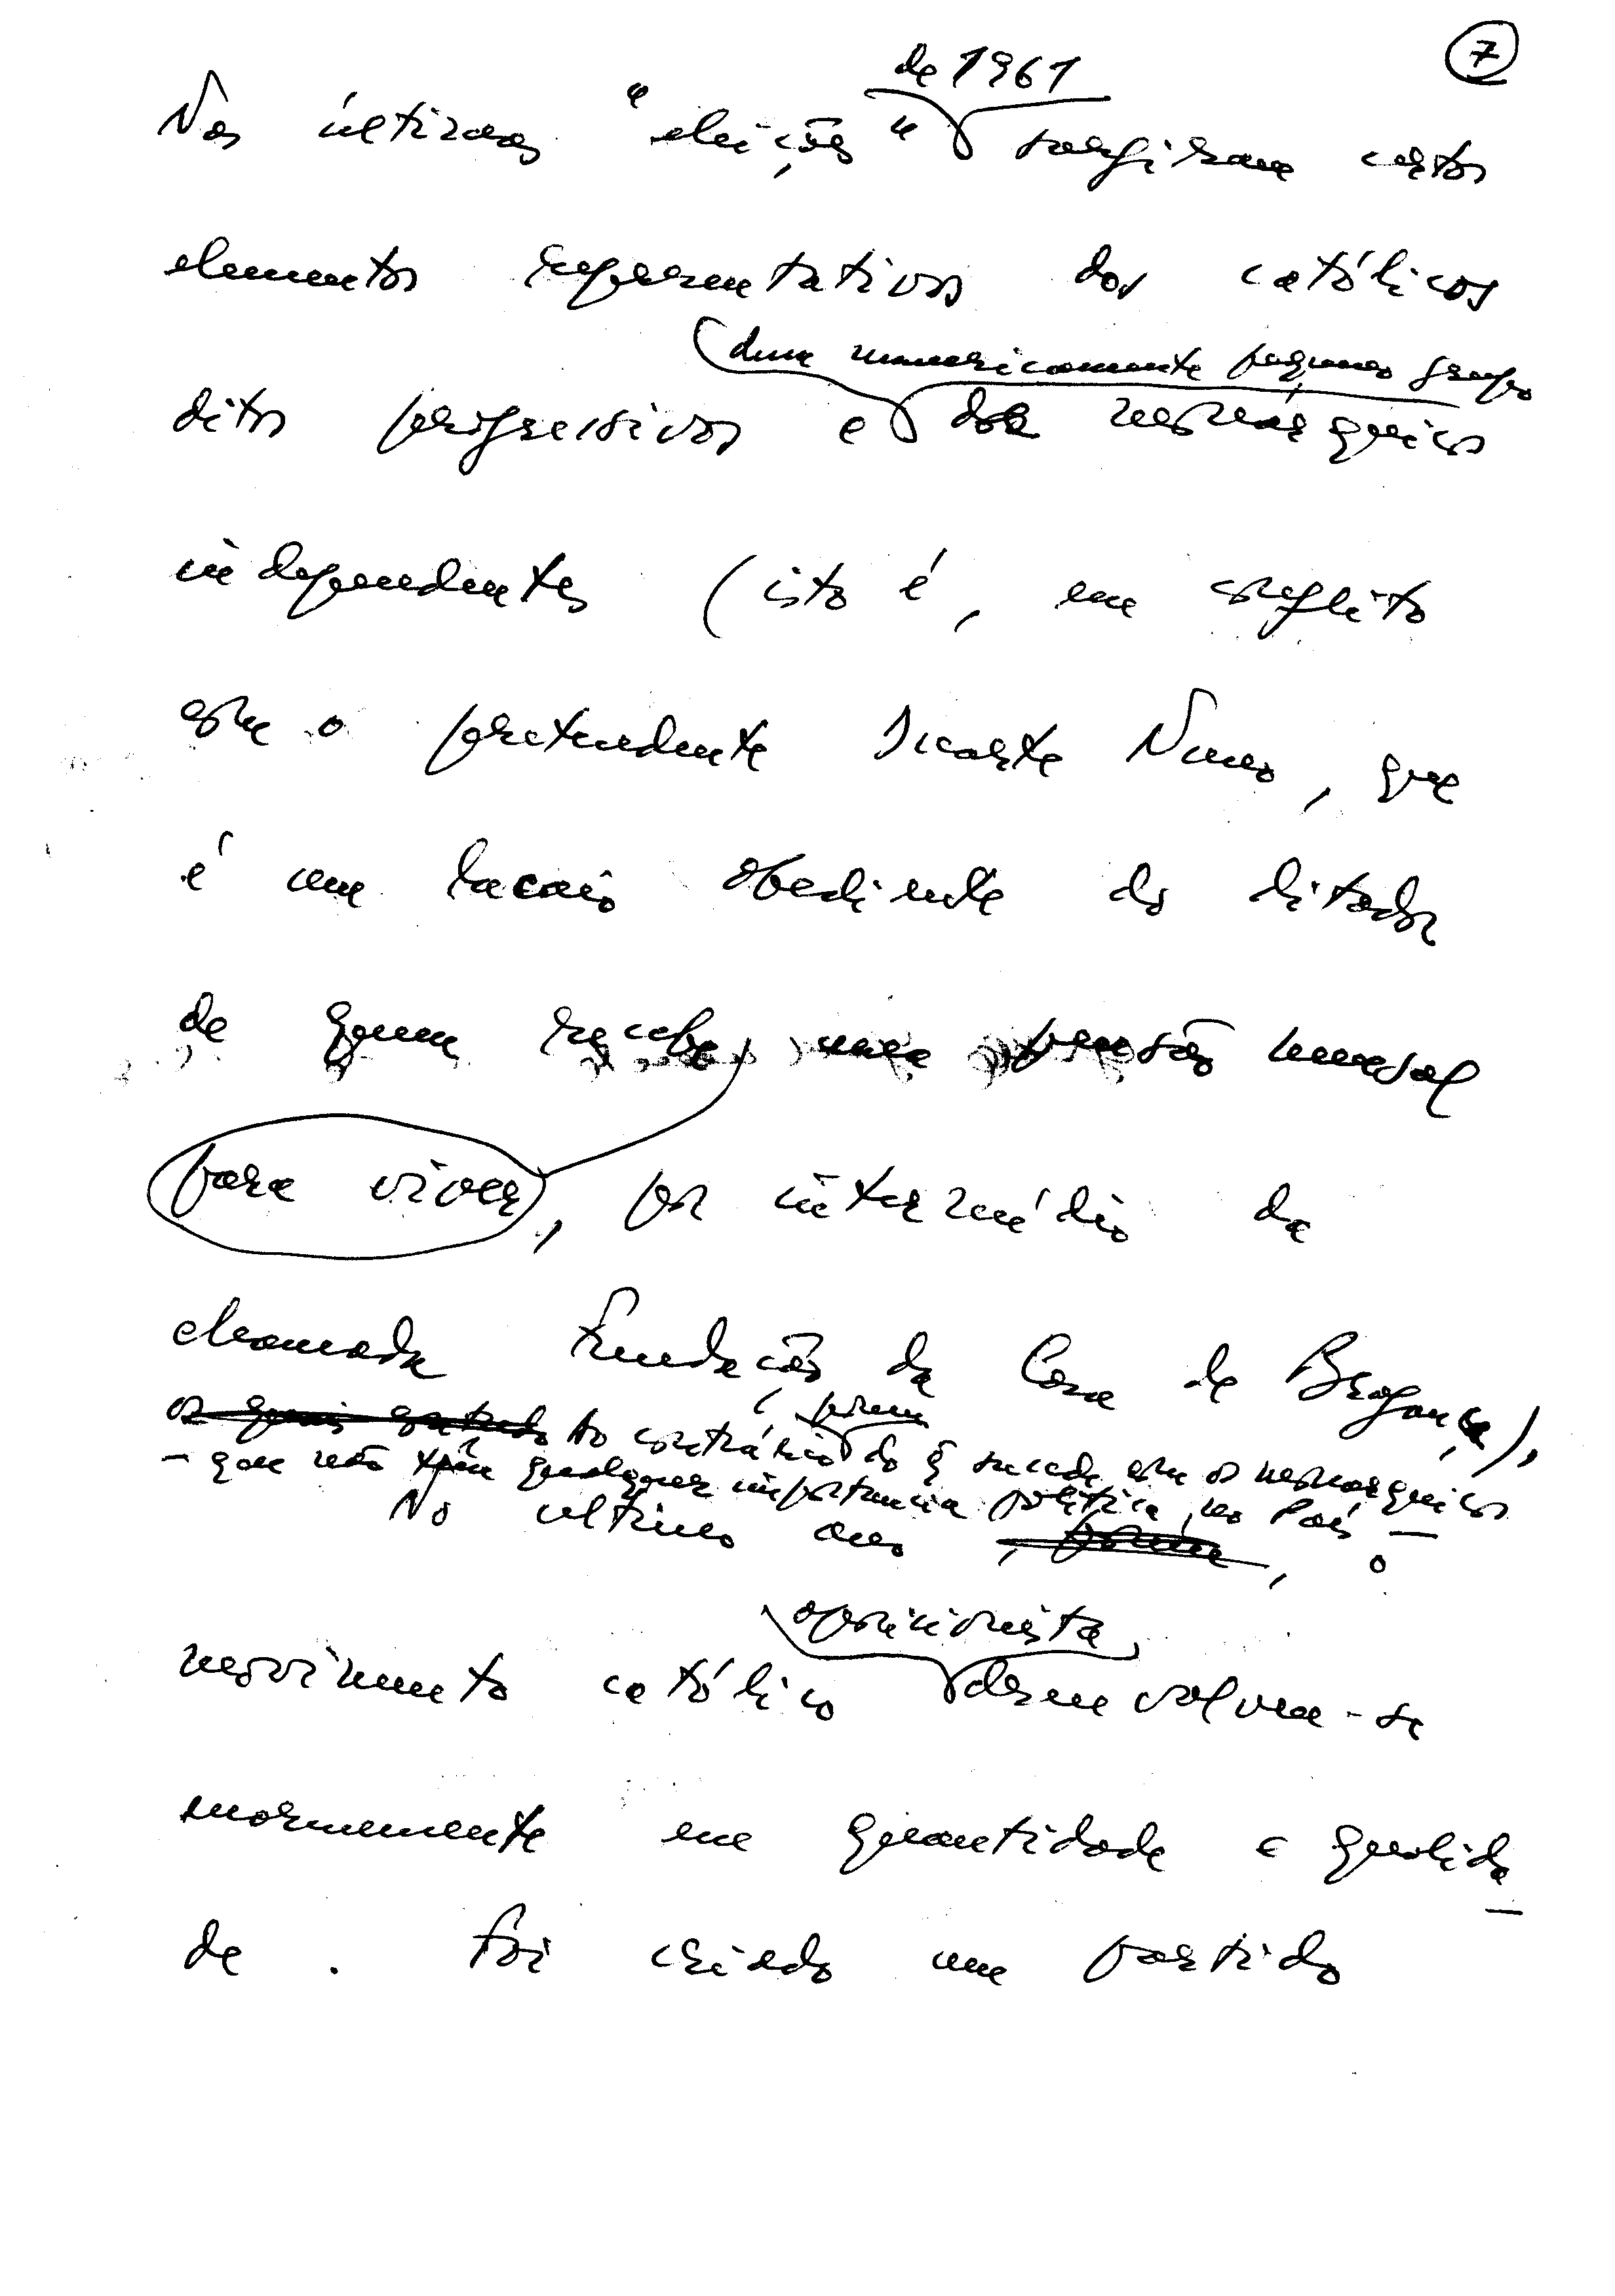 7
de 1961
Nas últimas "eleições" surgiram certos
elementos representativos dos católicos
dum numericamente pequeno grupo
ditos progressivos e de monárquicos
independentes (isto é, em conflito
com o pretendente Duarte Nuno, que
é um lacaio obediente do ditador
de quem recebe uma pensão mensal
para viver, por intermédio da
chamada Fundação da Casa de Bragança),
porém
os quais Ao contrário do q sucede com os monárquicos
- que não têm qualquer importancia política no País -
No ultimo ano, porém, o
oposicionista
movimento católico desenvolveu-se
enormemente em quantidade e qualida-
de. Foi criado um partido